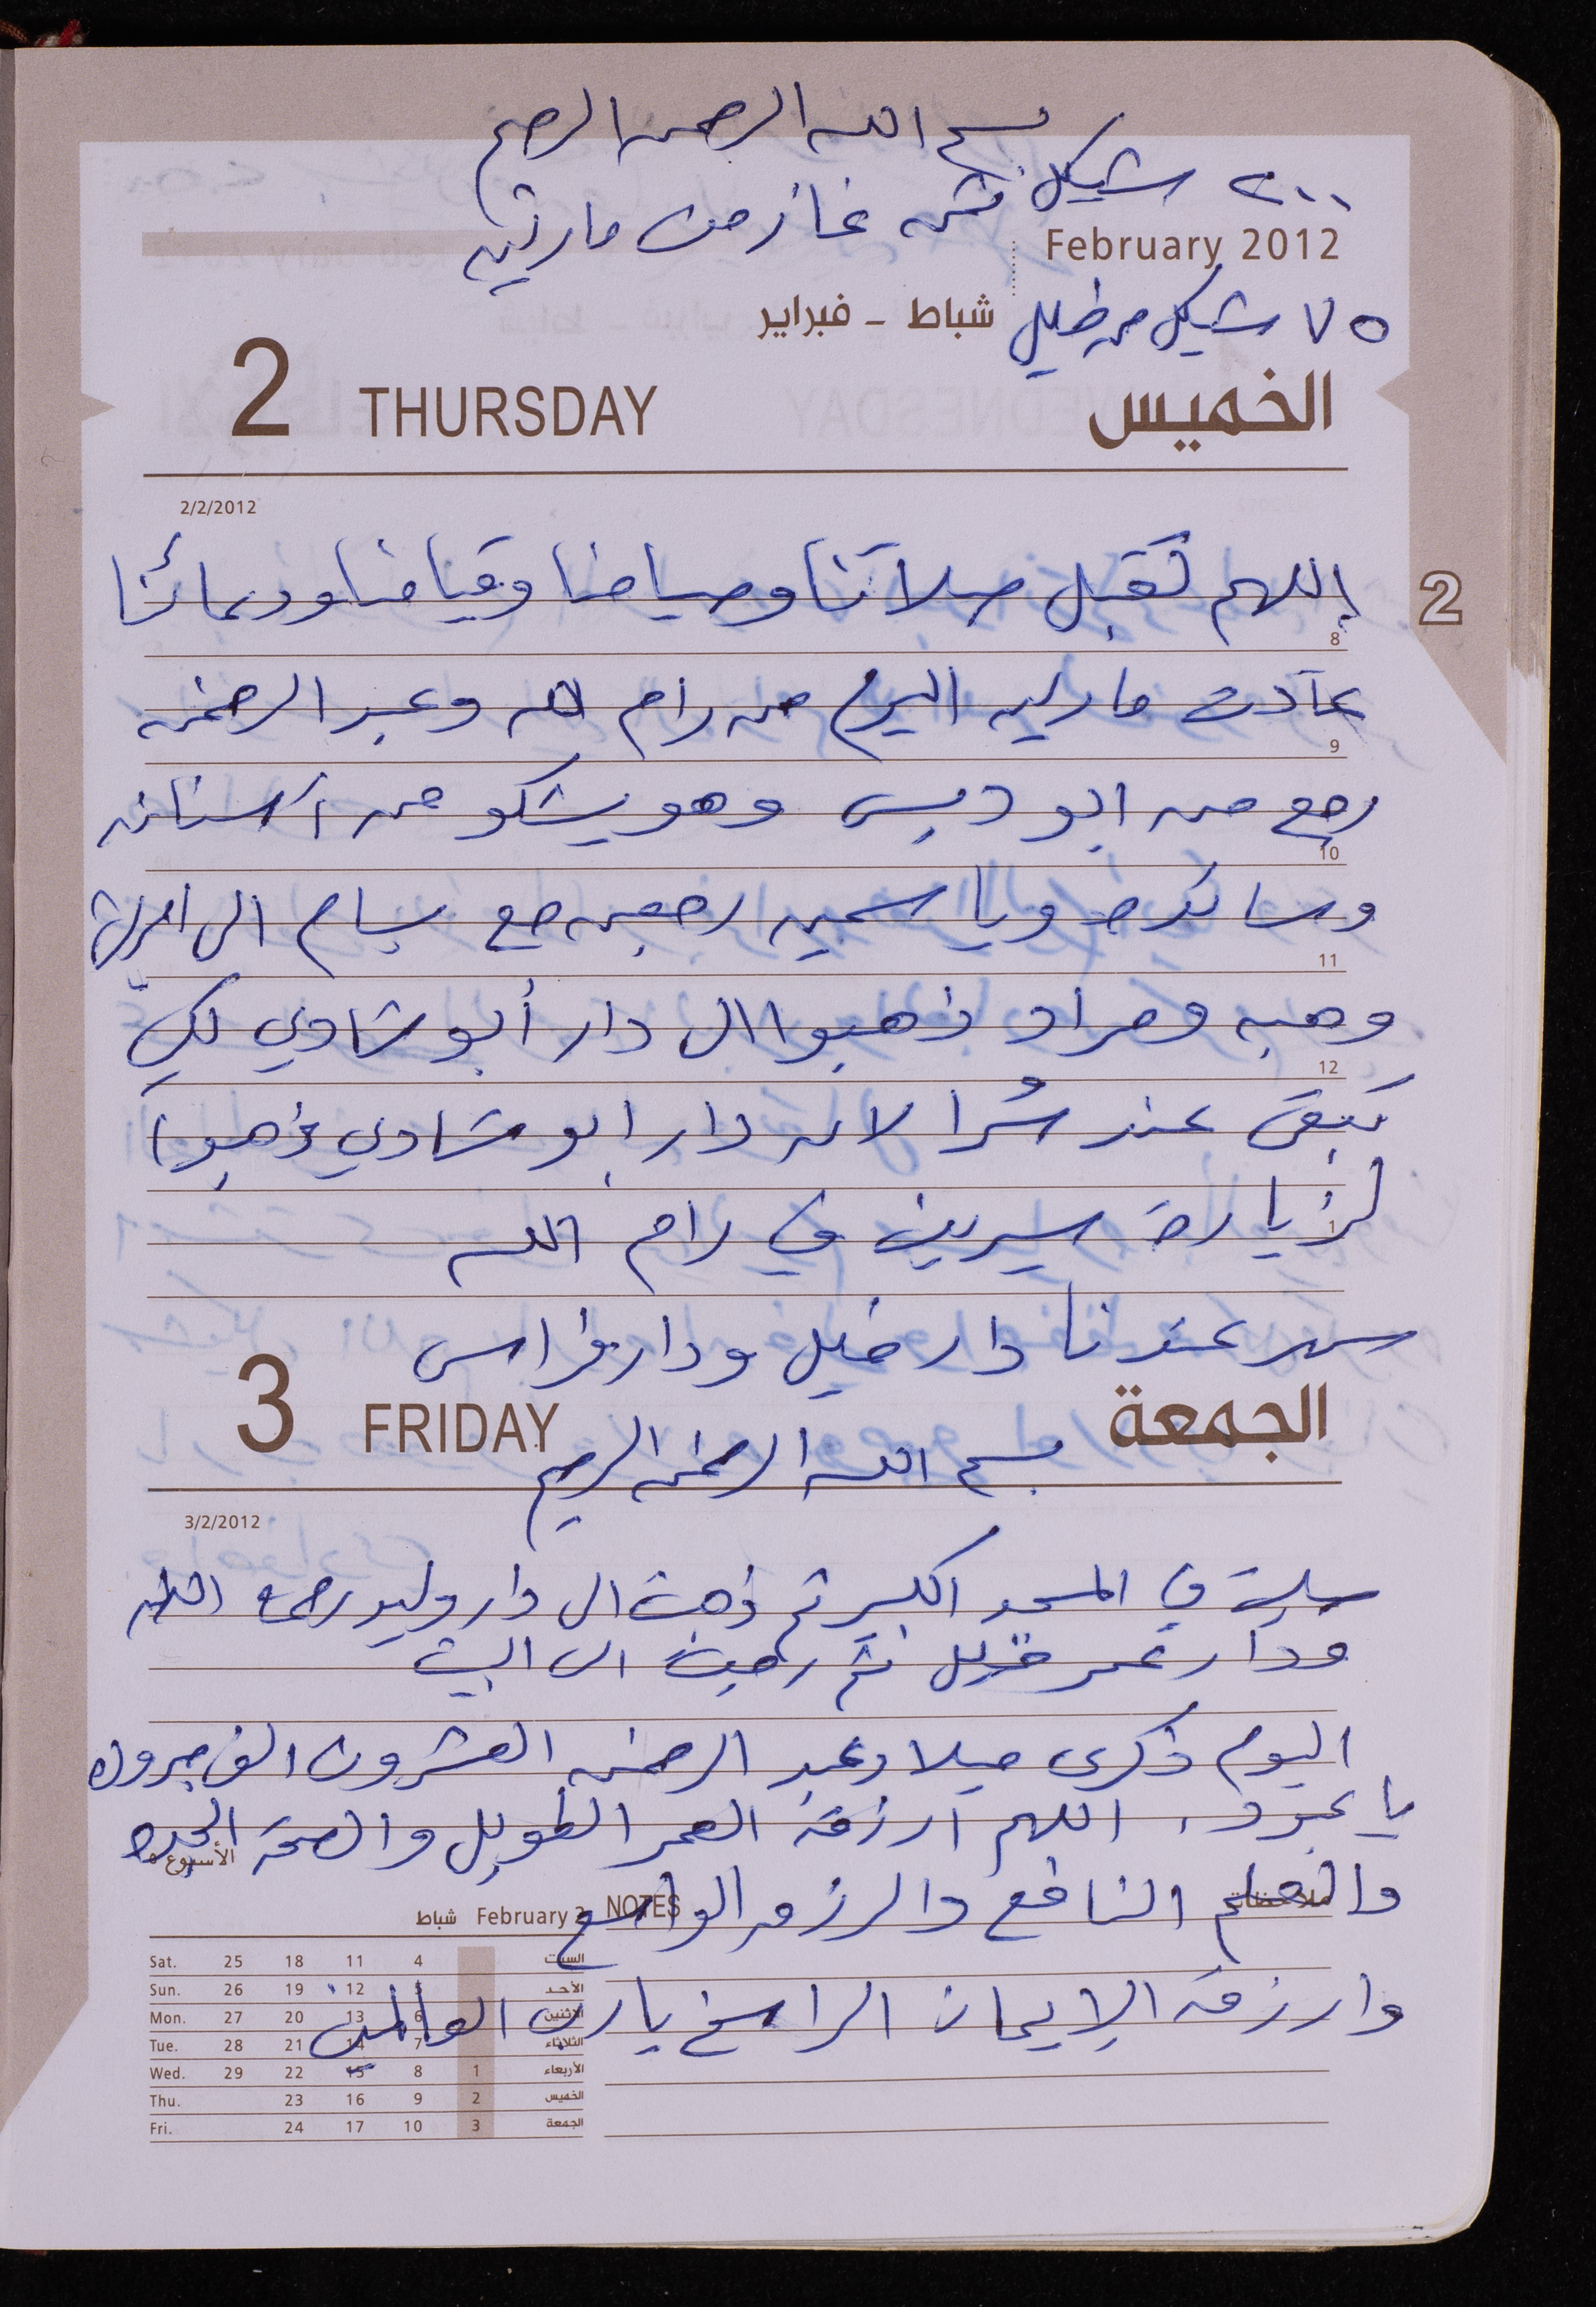 بسم الله الرحمن الرحيم
٢٠٠ شيكل ثمن غاز من مارلين
February 2012
٧٥ شيكل من خليل
شباط - فبراير
2 THURSDAY الخميس
2/2/2012
2
اللهم تقبل صلاتنا وصيامنا وقيامنا ودعائنا
8
عادت مارلين اليوم من رام الله وعبد الرحمن
9
رجع من ابو ديس وهو يشكو من أسنانه
10
وسائدة وياسمين رجعن مع بسام الى
11
وهبه ومراد ذهبوا الى دار أبو شادي لكي
12
تبقى عند يُسرا لان دار ابو شادي ذهبوا
1
لزيارة سيرين في رام الله
سهر عندنا دار خليل ودار فراس
3 FRIDAY الجمعة
بسم الله الرحمن الرحيم
3/2/2012
صليت في المسجد الكبير ثم ذهبت الى دار وليد رحمه الله
ودار عمر خليل ثم رجعت الى البيت
اليوم ذكرى ميلاد عبد الرحمن العشرون الف مبروك
يا عبود، اللهم ارزقه العمر الطويل والصحة الجيده
الأسبوع
والعلم النافع والرزق الواسع
ملاحظات NOTES
February 2 شباط
وارزقه الإيمان الراسخ يا رب العالمين
Sat. 25 18 11 4 السبت
Sun. 26 19 12 5 الأحد
Mon. 27 20 13 6 الاثنين
Tue. 28 21 14 7 الثلاثاء
Wed. 29 22 15 8 1 الأربعاء
Thu. 23 16 9 2 الخميس
Fri. 24 17 10 3 الجمعة